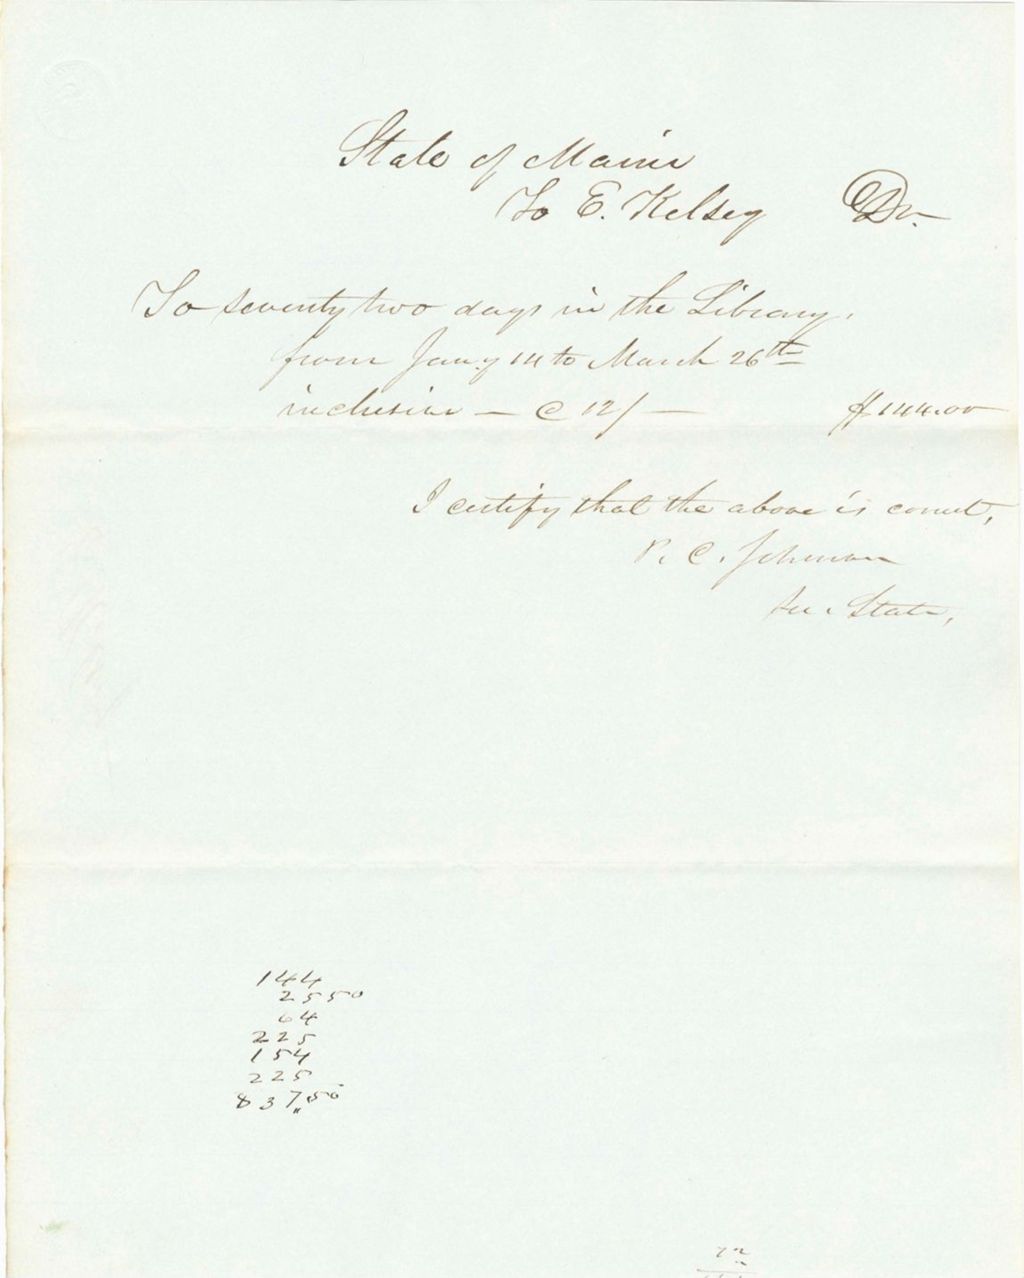 State of Maine
To E. Kelsey Dr.
To seventy two days in the Library,
from Jany 14 to March 26th
inclusive — @ 12/ — $144.00
I certify that the above is correct,
P. C. Johnson
Sec. State,
144
25 50
64
225
154
225
837,50
72